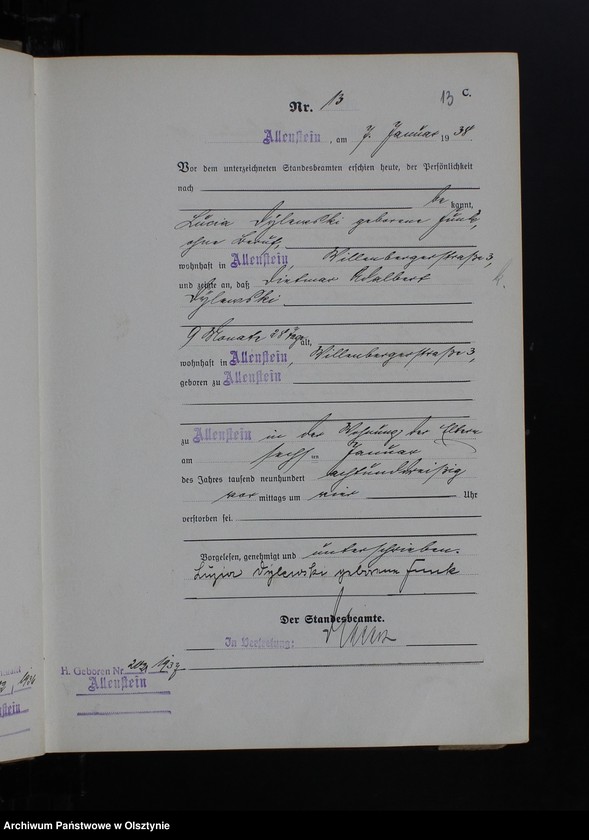 13 C.
Nr. 13
Allenstein, am 7. Januar 1938
Vor dem unterzeichneten Standesbeamten erschien heute, der Persönlichkeit
nach
be kannt,
Lucia Dylewski geborene Funk,
ohne Beruf,
wohnhaft in Allenstein, Willenbergerstraße 3,
und zeigte an, daß Dietmar Adalbert
Dylewski
9 Monate 28 Tage alt,
wohnhaft in Allenstein, Willenbergerstraße 3,
geboren zu Allenstein
zu Allenstein in der Wohnung der Eltern
am sechsten Januar
des Jahres tausend neunhundert achtunddreißig
vor mittags um vier Uhr
verstorben sei.
Vorgelesen, genehmigt und unterschrieben.
Luzia Dylewski geborene Funk
Der Standesbeamte.
In Vertretung:
H. Geboren Nr. 1937
Allenstein
Archiwum Państwowe w Olsztynie